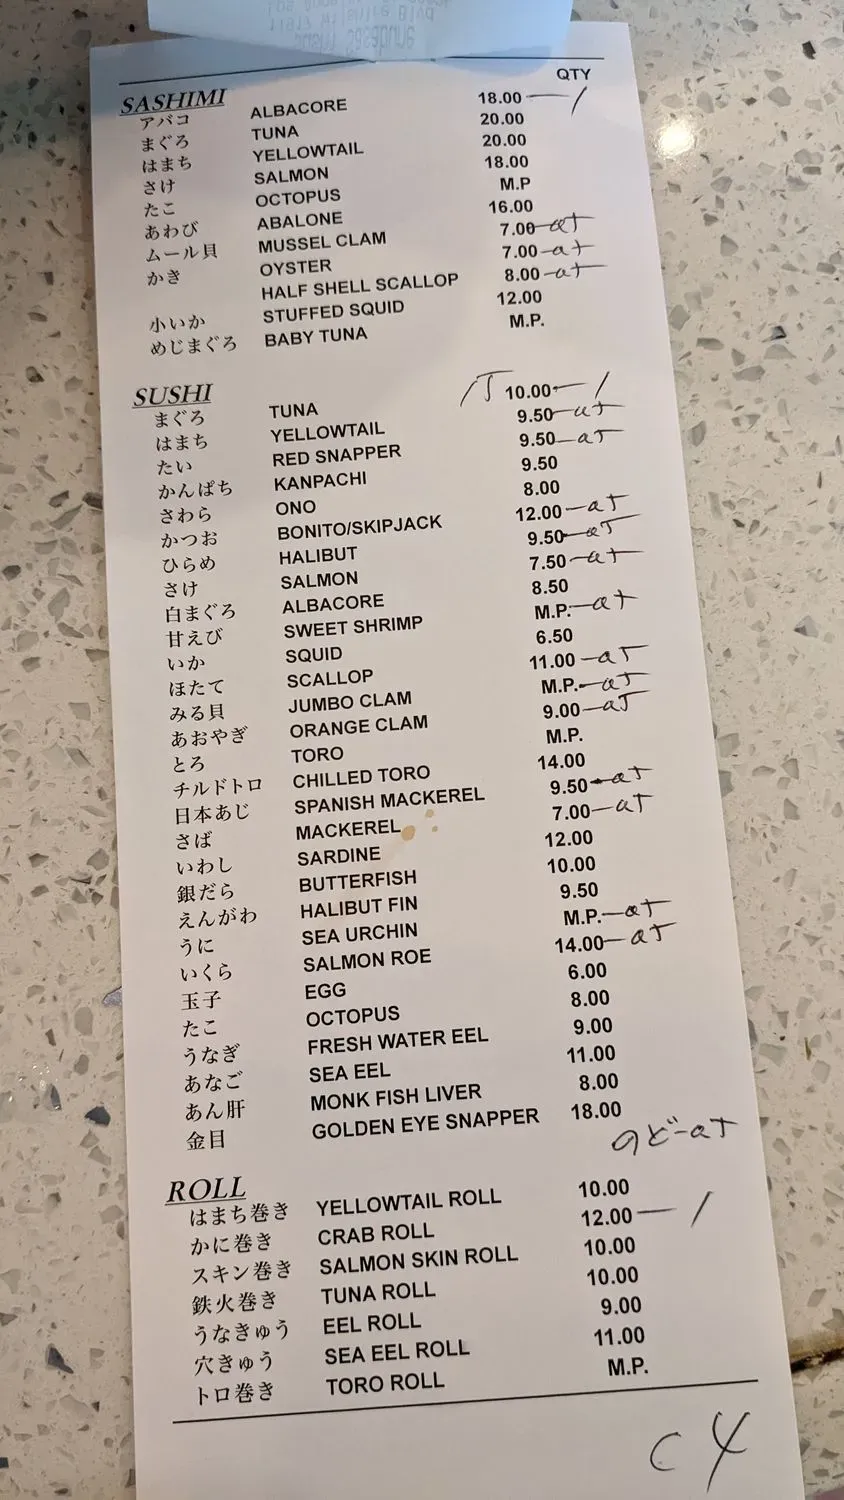 QTY
SASHIMI
アバコ ALBACORE 18.00 — /
まぐろ TUNA 20.00
はまち YELLOWTAIL 20.00
さけ SALMON 18.00
たこ OCTOPUS M.P
あわび ABALONE 16.00
ムール貝 MUSSEL CLAM 7.00 —at
かき OYSTER 7.00 —at
HALF SHELL SCALLOP 8.00 —at
小いか STUFFED SQUID 12.00
めじまぐろ BABY TUNA M.P.
SUSHI
まぐろ TUNA 10.00 — /
はまち YELLOWTAIL 9.50 —at
たい RED SNAPPER 9.50 —at
かんぱち KANPACHI 9.50
さわら ONO 8.00
かつお BONITO/SKIPJACK 12.00 —at
ひらめ HALIBUT 9.50 —at
さけ SALMON 7.50 —at
白まぐろ ALBACORE 8.50
甘えび SWEET SHRIMP M.P. —at
いか SQUID 6.50
ほたて SCALLOP 11.00 —at
みる貝 JUMBO CLAM M.P. —at
あおやぎ ORANGE CLAM 9.00 —at
とろ TORO M.P.
チルドトロ CHILLED TORO 14.00
日本あじ SPANISH MACKEREL 9.50 —at
さば MACKEREL 7.00 —at
いわし SARDINE 12.00
銀だら BUTTERFISH 10.00
えんがわ HALIBUT FIN 9.50
うに SEA URCHIN M.P. —at
いくら SALMON ROE 14.00 —at
玉子 EGG 6.00
たこ OCTOPUS 8.00
うなぎ FRESH WATER EEL 9.00
あなご SEA EEL 11.00
あん肝 MONK FISH LIVER 8.00
金目 GOLDEN EYE SNAPPER 18.00
のど—at
ROLL
はまち巻き YELLOWTAIL ROLL 10.00
かに巻き CRAB ROLL 12.00 — /
スキン巻き SALMON SKIN ROLL 10.00
鉄火巻き TUNA ROLL 10.00
うなきゅう EEL ROLL 9.00
穴きゅう SEA EEL ROLL 11.00
トロ巻き TORO ROLL M.P.
C4